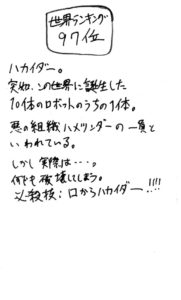 世界ランキング
97位
ハカイダー。
実は、この世界に誕生した
10体のロボットのうちの1体。
悪の組織ハメツンダーの一員と
いわれている。
しかし実際は・・・。
何でも破壊してしまう。
必殺技：口からハカイダー!!!!